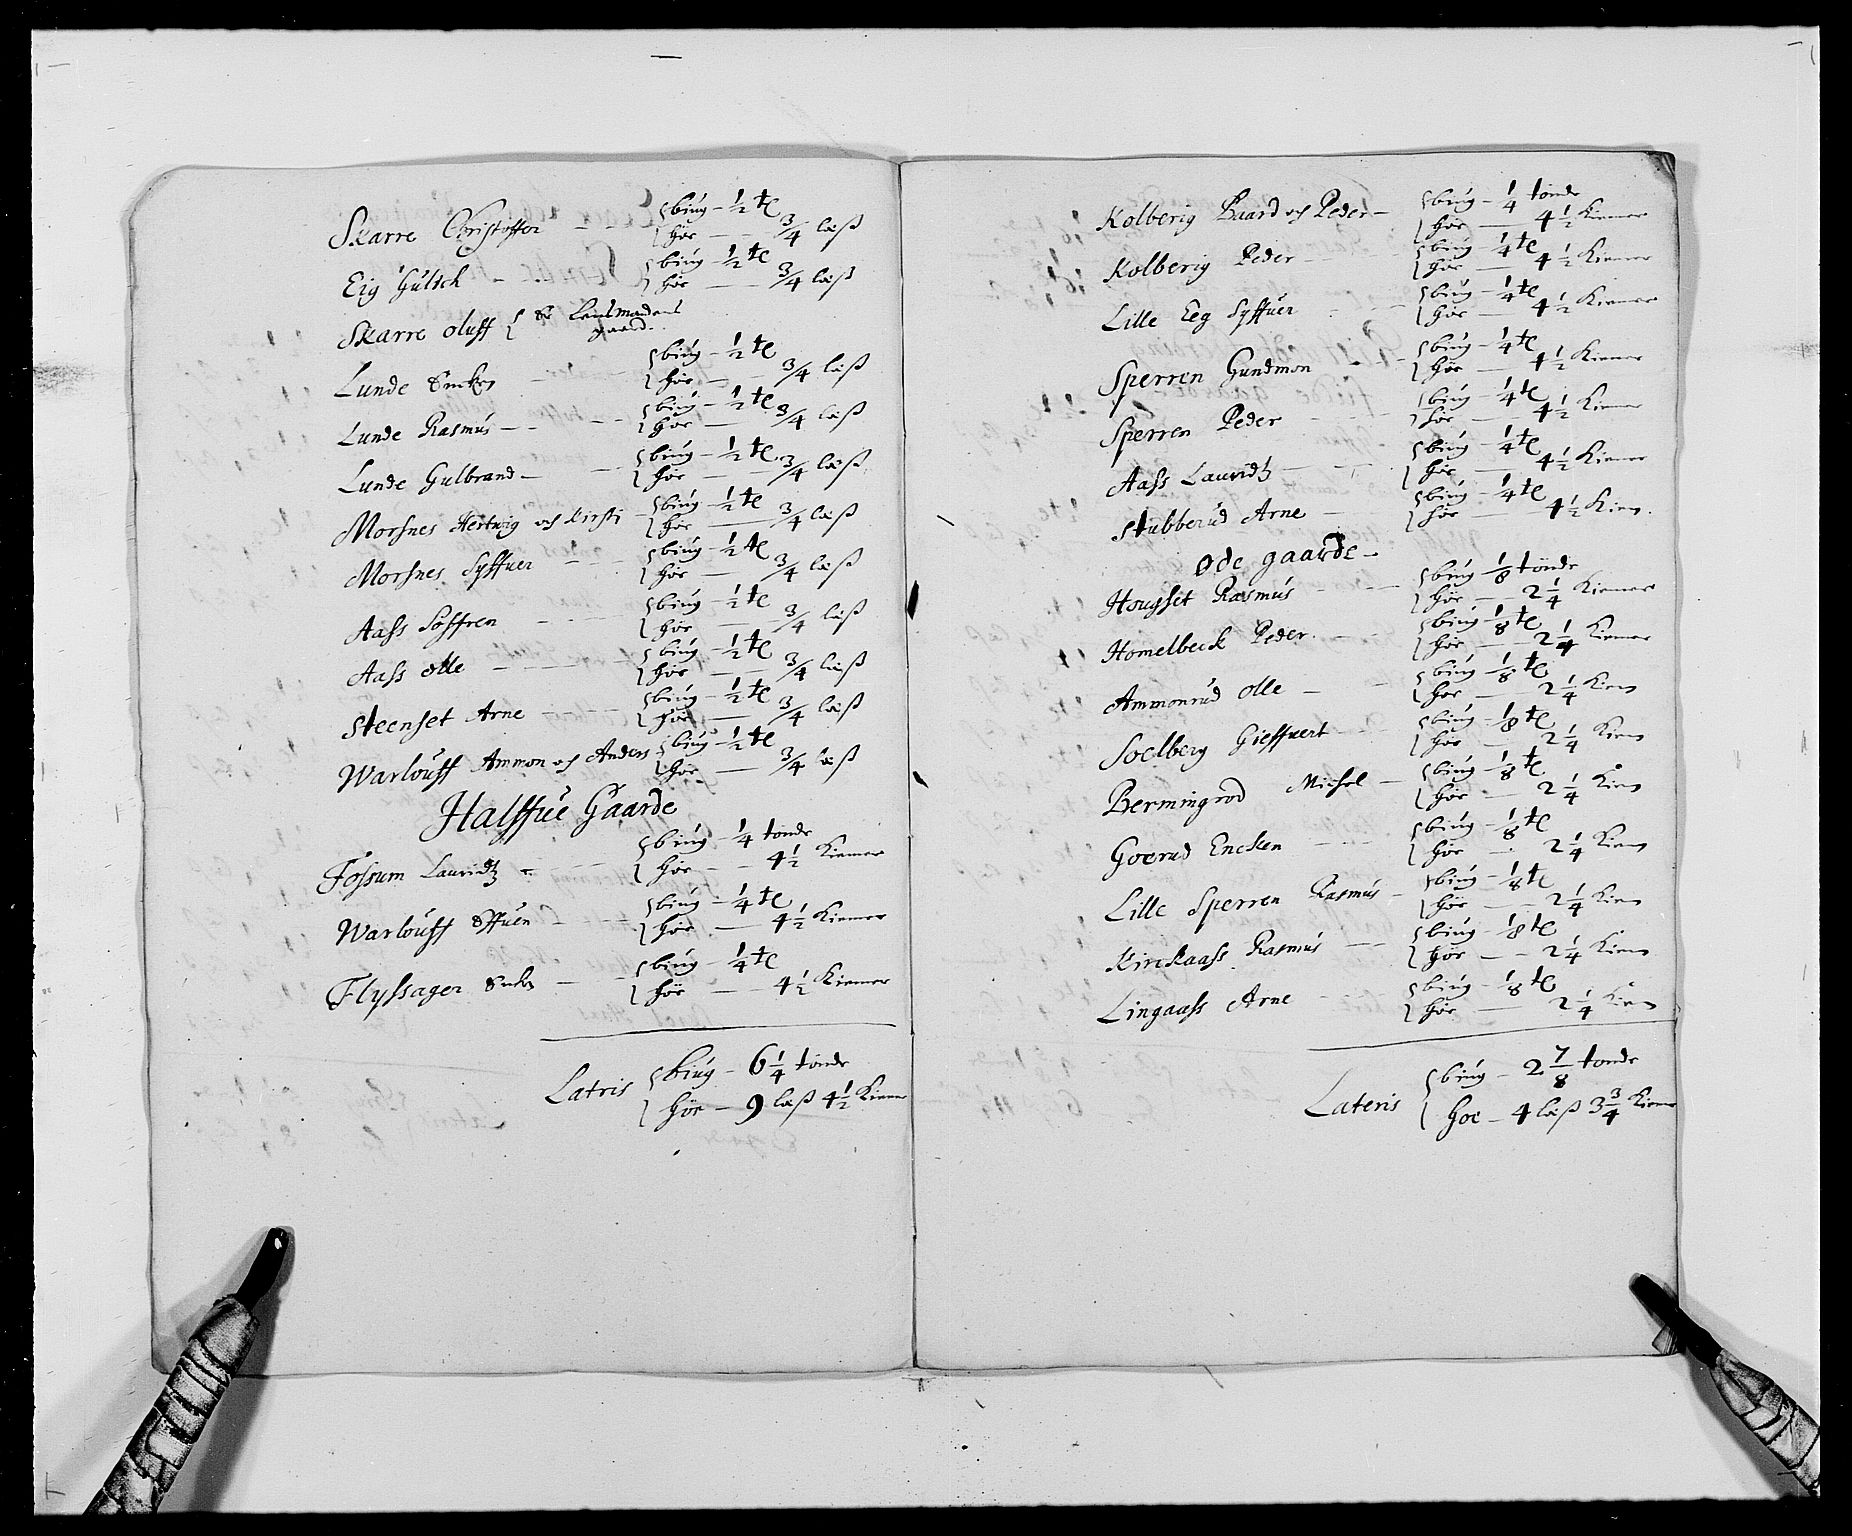 Skarre Christoffer — { biúg — 1/2 te
{ høe — 3/4 læß
Eig Gúlich — { biúg — 1/2 te
{ høe — 3/4 læß
Skarre Oluff { Er Lensmandens
gaard.
Lunde — { biúg — 1/2 te
{ høe — 3/4 læß
Lunde Rasmús — { biúg — 1/2 te
{ høe — 3/4 læß
Lunde Gulbrand — { biúg — 1/2 te
{ høe — 3/4 læß
Morsnes Hertwig och Kirsti { biúg — 1/2 te
{ høe — 3/4 læß
Morsnes Syffuer — { biúg — 1/2 te
{ høe — 3/4 læß
Aass Søffren — { biúg — 1/2 te
{ høe — 3/4 læß
Aass Olle — { biúg — 1/2 te
{ høe — 3/4 læß
Steenset Arne — { biúg — 1/2 te
{ høe — 3/4 læß
Warlouff Ammon och Anders { biúg — 1/2 te
{ høe — 3/4 læß
Halffúe Gaarde
Fossum Lauridtz — { biúg — 1/4 tønde
{ høe — 4 1/2 Kiemer
Warlouff Effuen — { biúg — 1/4 te
{ høe — 4 1/2 Kiemer
Flyssager — { biúg — 1/4 te
{ høe — 4 1/2 Kiemer
Latris { biúg — 6 1/4 tønde
{ høe — 9 læß 4 1/2 Kiemer
Kolberig Baard och Peder — { biúg — 1/4 tønde
{ høe — 4 1/2 Kiemer
Kolberig Peder — { biúg — 1/4 te
{ høe — 4 1/2 Kiemer
Lille Eeg Syffuer — { biúg — 1/4 te
{ høe — 4 1/2 Kiemer
Sperren Gundmon — { biúg — 1/4 te
{ høe — 4 1/2 Kiemer
Sperren Peder — { biúg — 1/4 te
{ høe — 4 1/2 Kiemer
Aass Lauridtz — { biúg — 1/4 te
{ høe — 4 1/2 Kiemer
Stubberúd Arne — { biúg — 1/4 te
{ høe — 4 1/2 Kiem
Øde gaarde —
Hougset Rasmús — { biúg — 1/8 tønde
{ høe — 2 1/4 Kiemer
Homelbeck Peder — { biúg — 1/8 te
{ høe — 2 1/4 Kiemer
Ammonrúd Olle — { biúg — 1/8 te
{ høe — 2 1/4 Kiem
Soelberg Gieffuert — { biúg — 1/8 te
{ høe — 2 1/4 Kiem
Bermingrod Michel — { biúg — 1/8 te
{ høe — 2 1/4 Kiem
Goerud Encken — { biúg — 1/8 te
{ høe — 2 1/4 Kiem
Lille Sperren Rasmús — { biúg — 1/8 te
{ høe — 2 1/4 Kiem
Kirckaass Rasmús — { biúg — 1/8 te
{ høe — 2 1/4 Kiem
Lingaass Arne — { biúg — 1/8 te
{ høe — 2 1/4 Kiem
Lateris { biúg — 2 7/8 tønde
{ høe — 4 læß 3 3/4 Kiemer